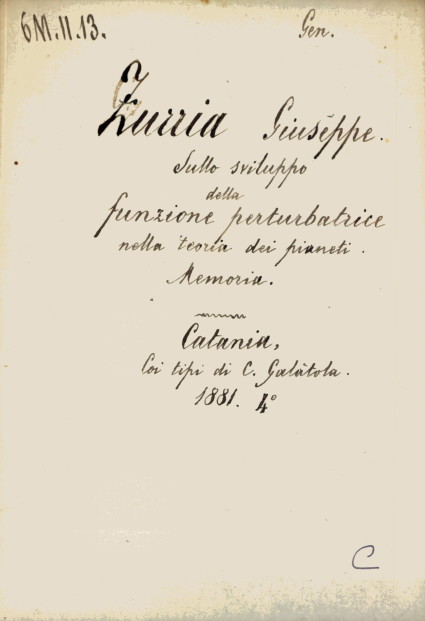 6M.II.13.
Gen.
Zurria Giuseppe.
Sullo sviluppo
della
funzione perturbatrice
nella teoria dei pianeti.
Memoria.
Catania,
Coi tipi di C. Galàtola.
1881. 4°
C